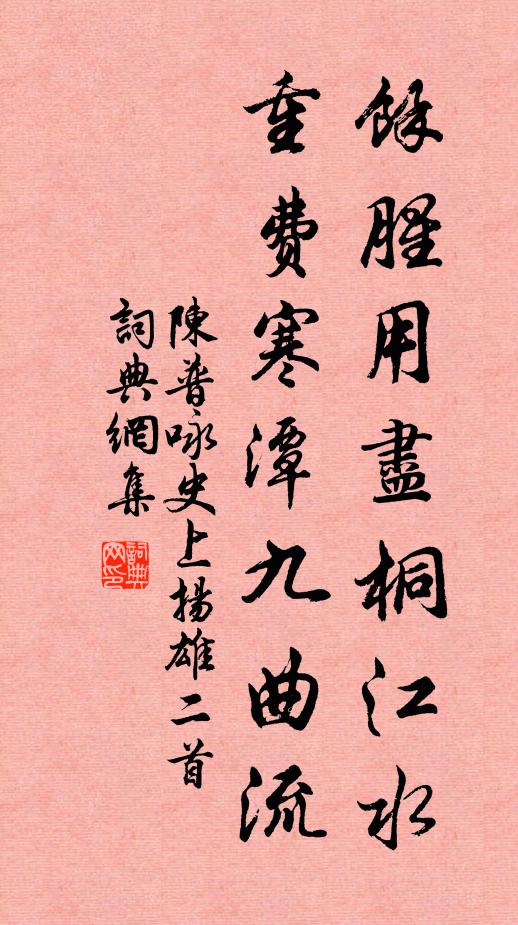 餘腥用盡桐江水
重費寒潭九曲流
陳普咏史上揚雄二首
詞典網集
詞典網印